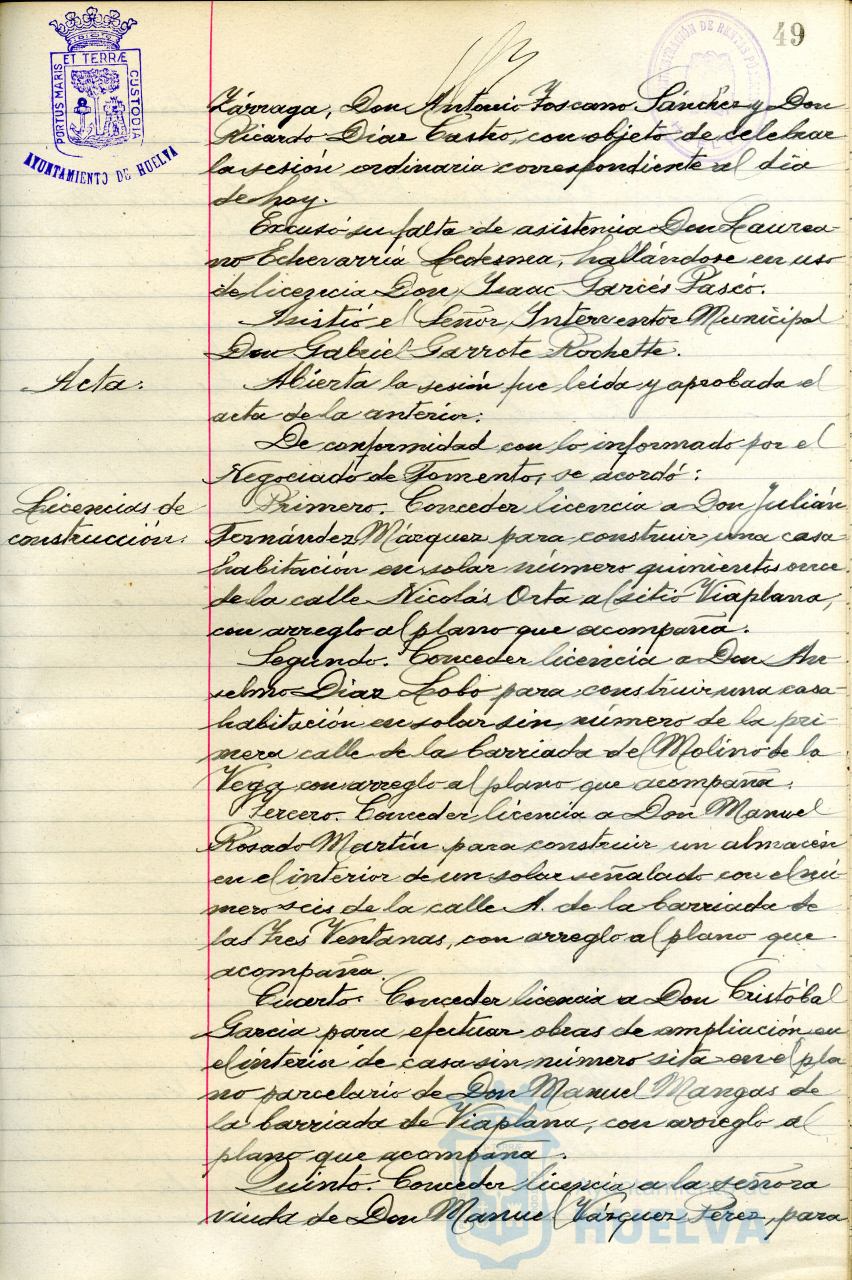 49
PORTUS MARIS ET TERRÆ CUSTODIA
AYUNTAMIENTO DE HUELVA
Zárraga, Don Antonio Toscano Sánchez y Don
Ricardo Díaz Castro, con objeto de celebrar
la sesión ordinaria correspondiente al día
de hoy.
Excusó su falta de asistencia Don Laurea-
no Echevarría Ledesma, hallándose en uso
de licencia Don Isaac Garcés Pascó.
Asistió el Señor Interventor Municipal
Don Gabriel Garrote Rochette.
Acta:
Abierta la sesión fue leida y aprobada el
acta de la anterior.
De conformidad con lo informado por el
Negociado de Fomento, se acordó:
Licencias de
construcción.
Primero. Conceder licencia a Don Julián
Fernández Márquez para construir una casa
habitación en solar número quinientos once
de la calle Nicolás Orta al sitio Viaplana,
con arreglo al plano que acompaña.
Segundo. Conceder licencia a Don An-
selmo Díaz Lobo para construir una casa-
habitación en solar sin número de la pri-
mera calle de la barriada del Molino de la
Vega con arreglo al plano que acompaña.
Tercero. Conceder licencia a Don Manuel
Rosado Martín para construir un almacén
en el interior de un solar señalado con el nú-
mero seis de la calle A. de la barriada de
las Tres Ventanas, con arreglo al plano que
acompaña.
Cuarto. Conceder licencia a Don Cristóbal
García para efectuar obras de ampliación en
el interior de casa sin número sita en el pla
no parcelario de Don Manuel Mangas de
la barriada de Viaplana, con arreglo al
plano que acompaña.
Quinto. Conceder licencia a la señora
viuda de Don Manuel Vázquez Pérez, para
Ayuntamiento de
HUELVA